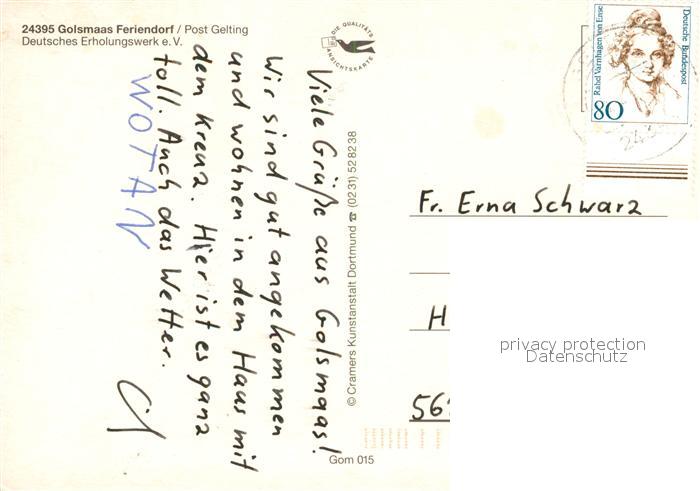 24395 Golsmaas Feriendorf / Post Gelting
Deutsches Erholungswerk e. V.
DIE QUALITÄTS
ANSICHTSKARTE
Viele Grüße aus Golsmaas!
Wir sind gut angekommen
und wohnen in dem Haus mit
dem Kreuz. Hier ist es ganz
toll. Auch das Wetter.
WOTAN
© Cramers Kunstanstalt Dortmund ☎ (0231) 528238
Gom 015
Rahel Varnhagen von Ense
Deutsche Bundespost
80
Fr. Erna Schwarz
H
privacy protection
Datenschutz